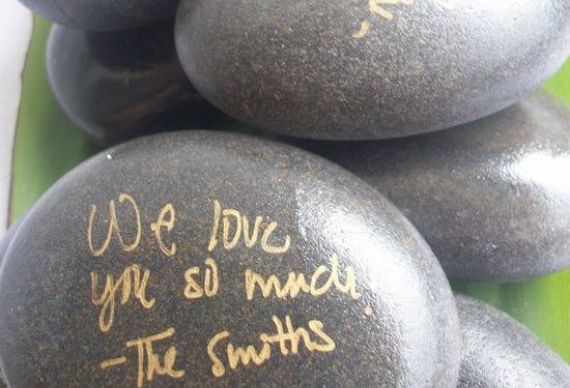 We love
you so much!
-The Smiths